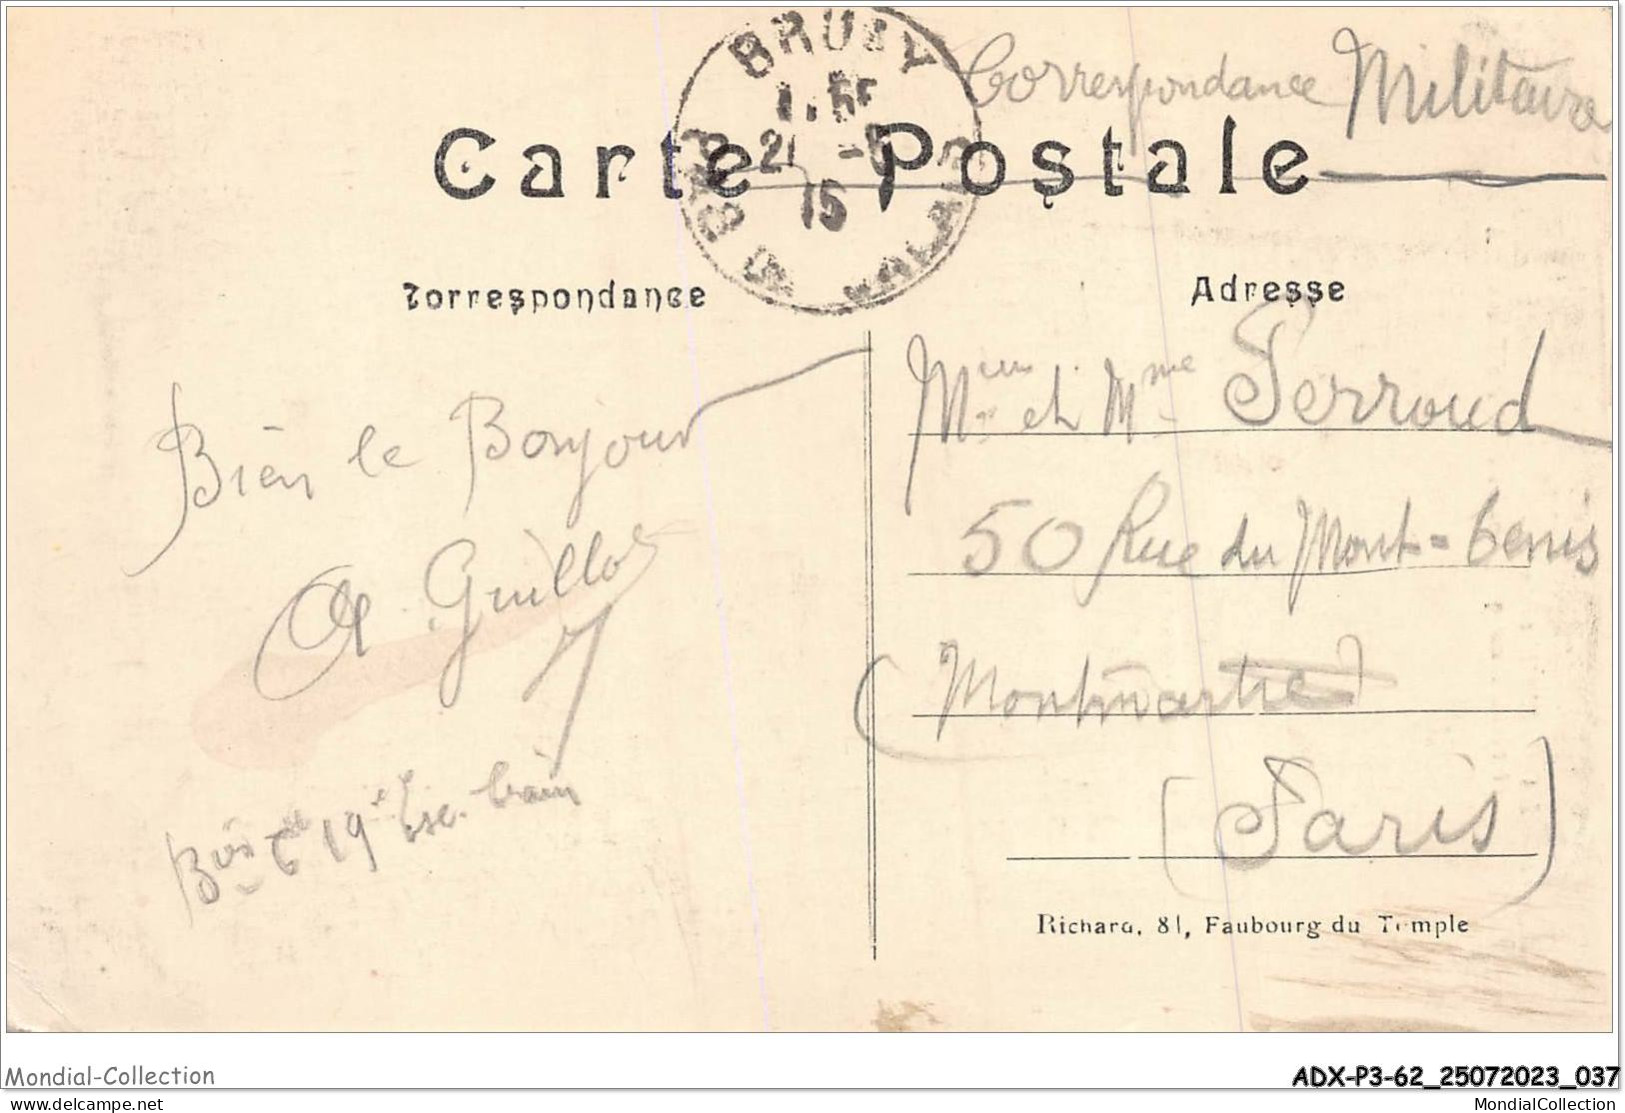 Correspondance Militaire
Carte Postale
BRUAY
21
15
PAS DE CALAIS
Correspondance
Adresse
Bien le Bonjour
A. Guillot
19e Esc. train
et Mme Perroud
50 Rue du Mont-Cenis
(Montmartre)
(Paris)
Richard, 81, Faubourg du Temple
Mondial-Collection
ADX-P3-62_25072023_037
delcampe.net
MondialCollection